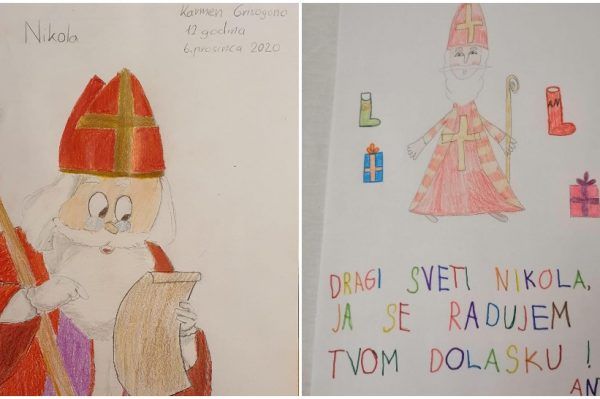 Nikola
Karmen Grisogono
12 godina
6. prosinca 2020
AN
DRAGI SVETI NIKOLA,
JA SE RADUJEM
TVOM DOLASKU!
AN